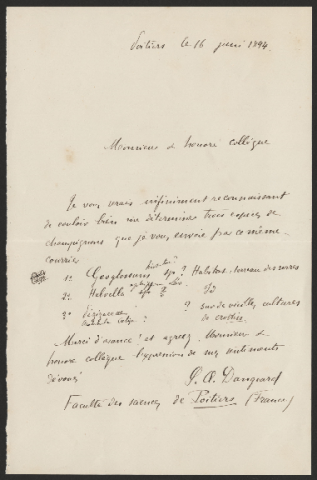 Poitiers le 16 juin 1894
Monsieur & honoré collègue
Je vous serais infiniment reconnaissant
de vouloir bien me déterminer trois espèces de
champignons que je vous envoie par ce même
courrier
1o Geoglossum sp. ? Habitat:
2o Helvella sp ? Id
3o ? sur de vieilles cultures
de crottin
Merci d'avance ! et agréez Monsieur &
honoré collègue l'expression de mes sentiments
dévoués
P. A. Dangeard
Faculté des sciences de Poitiers (France)